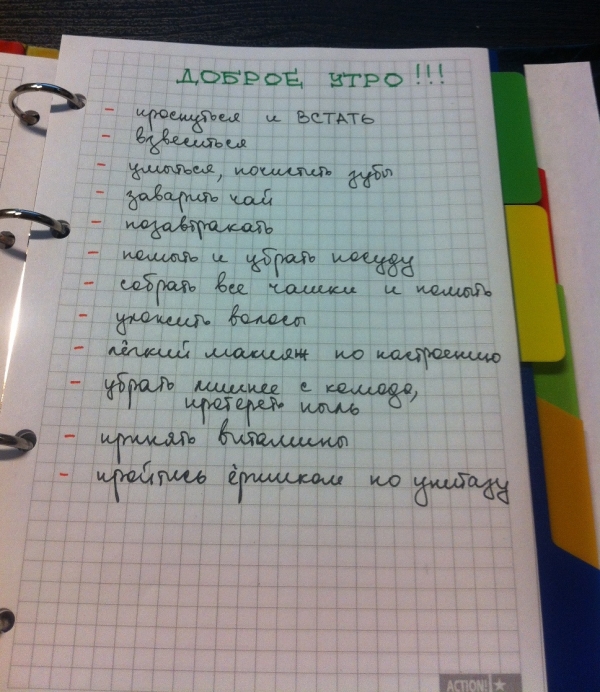 ДОБРОЕ УТРО!!!
- проснуться и ВСТАТЬ
- взвеситься
- умыться, почистить зубы
- заварить чай
- позавтракать
- помыть и убрать посуду
- собрать все чашки и помыть
- уложить волосы
- лёгкий макияж по настроению
- убрать лишнее с комода,
протереть пыль
- принять витамины
- пройтись ёршиком по унитазу
ACTION!